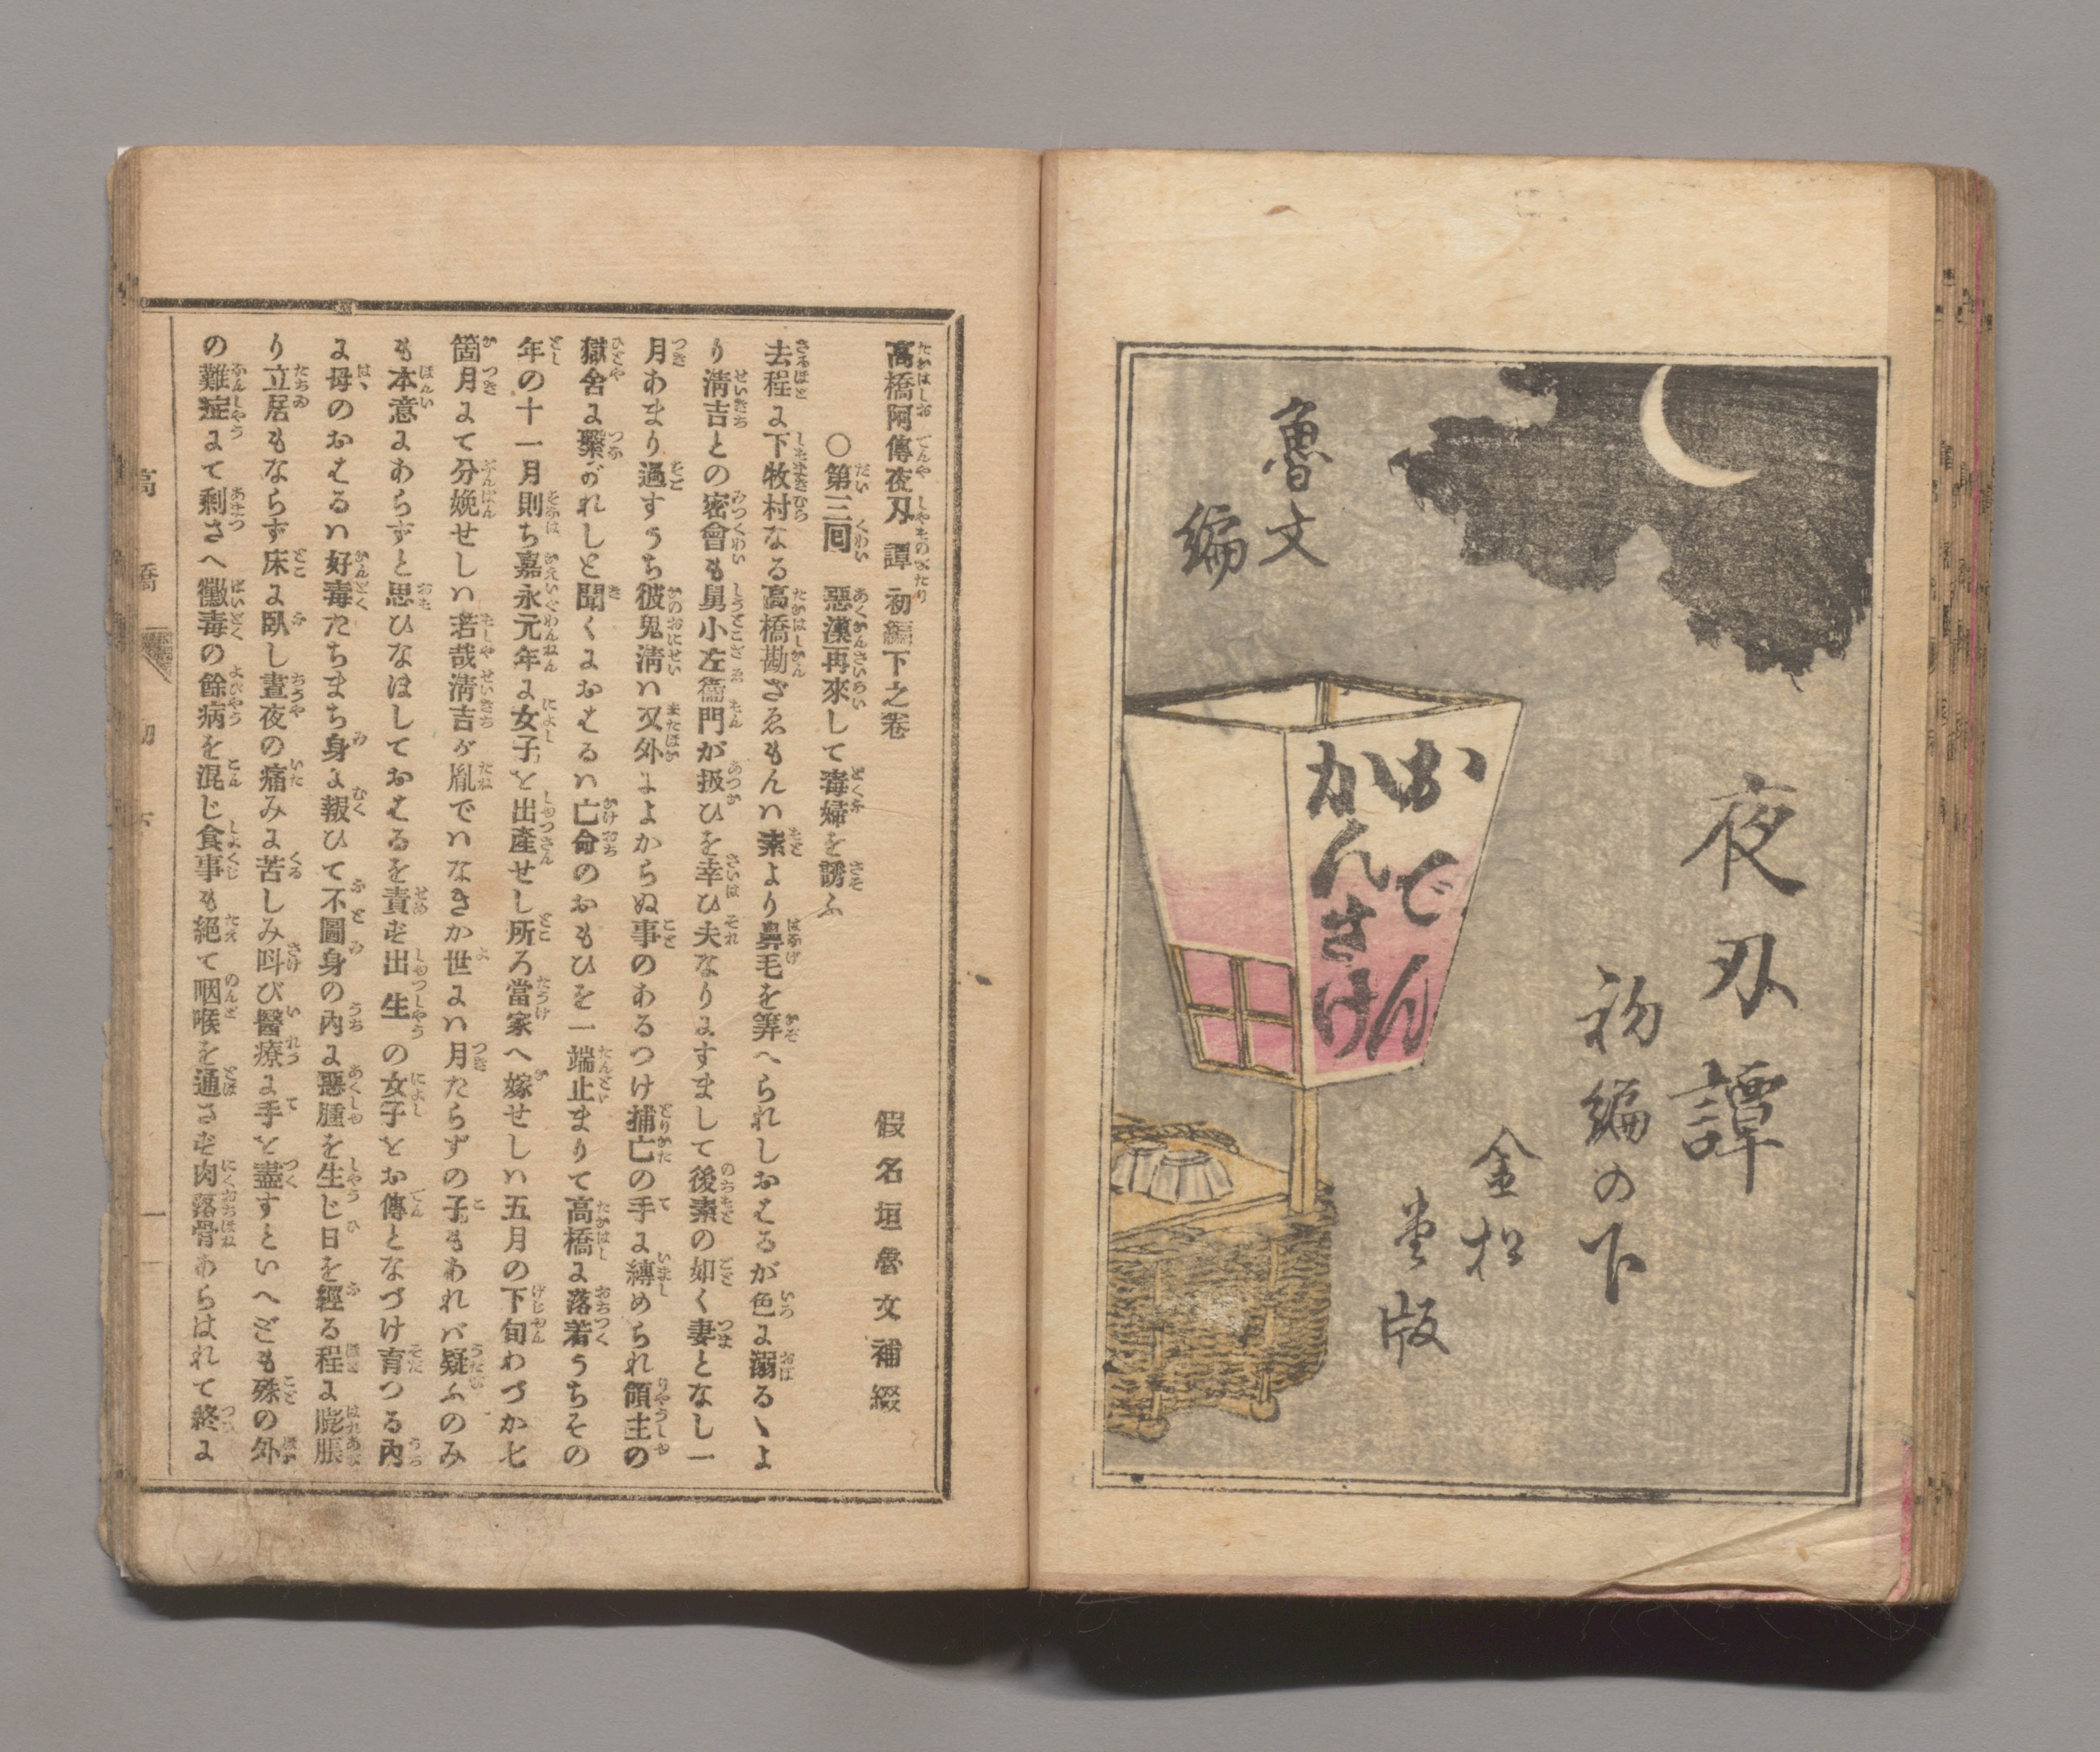 夜刃譚
初編の下
金松
堂版
おでん
かんさけ
魯文
編
高橋阿傳夜刃譚初編下之卷
假名垣魯文補綴
○第三囘 惡漢再來して毒婦を誘ふ
去程に下牧村なる高橋勘ざゑもんハ素より鼻毛を筭へられしおはるが色に溺るゝよ
り淸吉との密會も舅小左衞門が扱ひを幸ひ夫なりにすまして後素の如く妻となし一
月あまり過すうち彼鬼淸ハ又外によからぬ事のあるつけ捕亡の手に縛められ領主の
獄舍に繫がれしと聞くにおはるハ亡命のおもひを一端止まりて高橋に落着うちその
年の十一月則ち嘉永元年に女子を出產せし所ろ當家へ嫁せしハ五月の下旬わづか七
箇月にて分娩せしハ若哉淸吉が胤でハなきか世にハ月たらずの子もあれバ疑ふのみ
も本意にあらずと思ひなはしておはるを責ず出生の女子をお傳となづけ育つる內
に母のおはるハ奸毒たちまち身に報ひて不圖身の內に惡腫を生じ日を經る程に膨脹
り立居もならず床に臥し晝夜の痛みに苦しみ叫び醫療に手を盡すといへども殊の外
の難症にて剩さへ黴毒の餘病を混じ食事も絕て咽喉を通さず肉落骨あらはれて終に
高橋 初 下 一